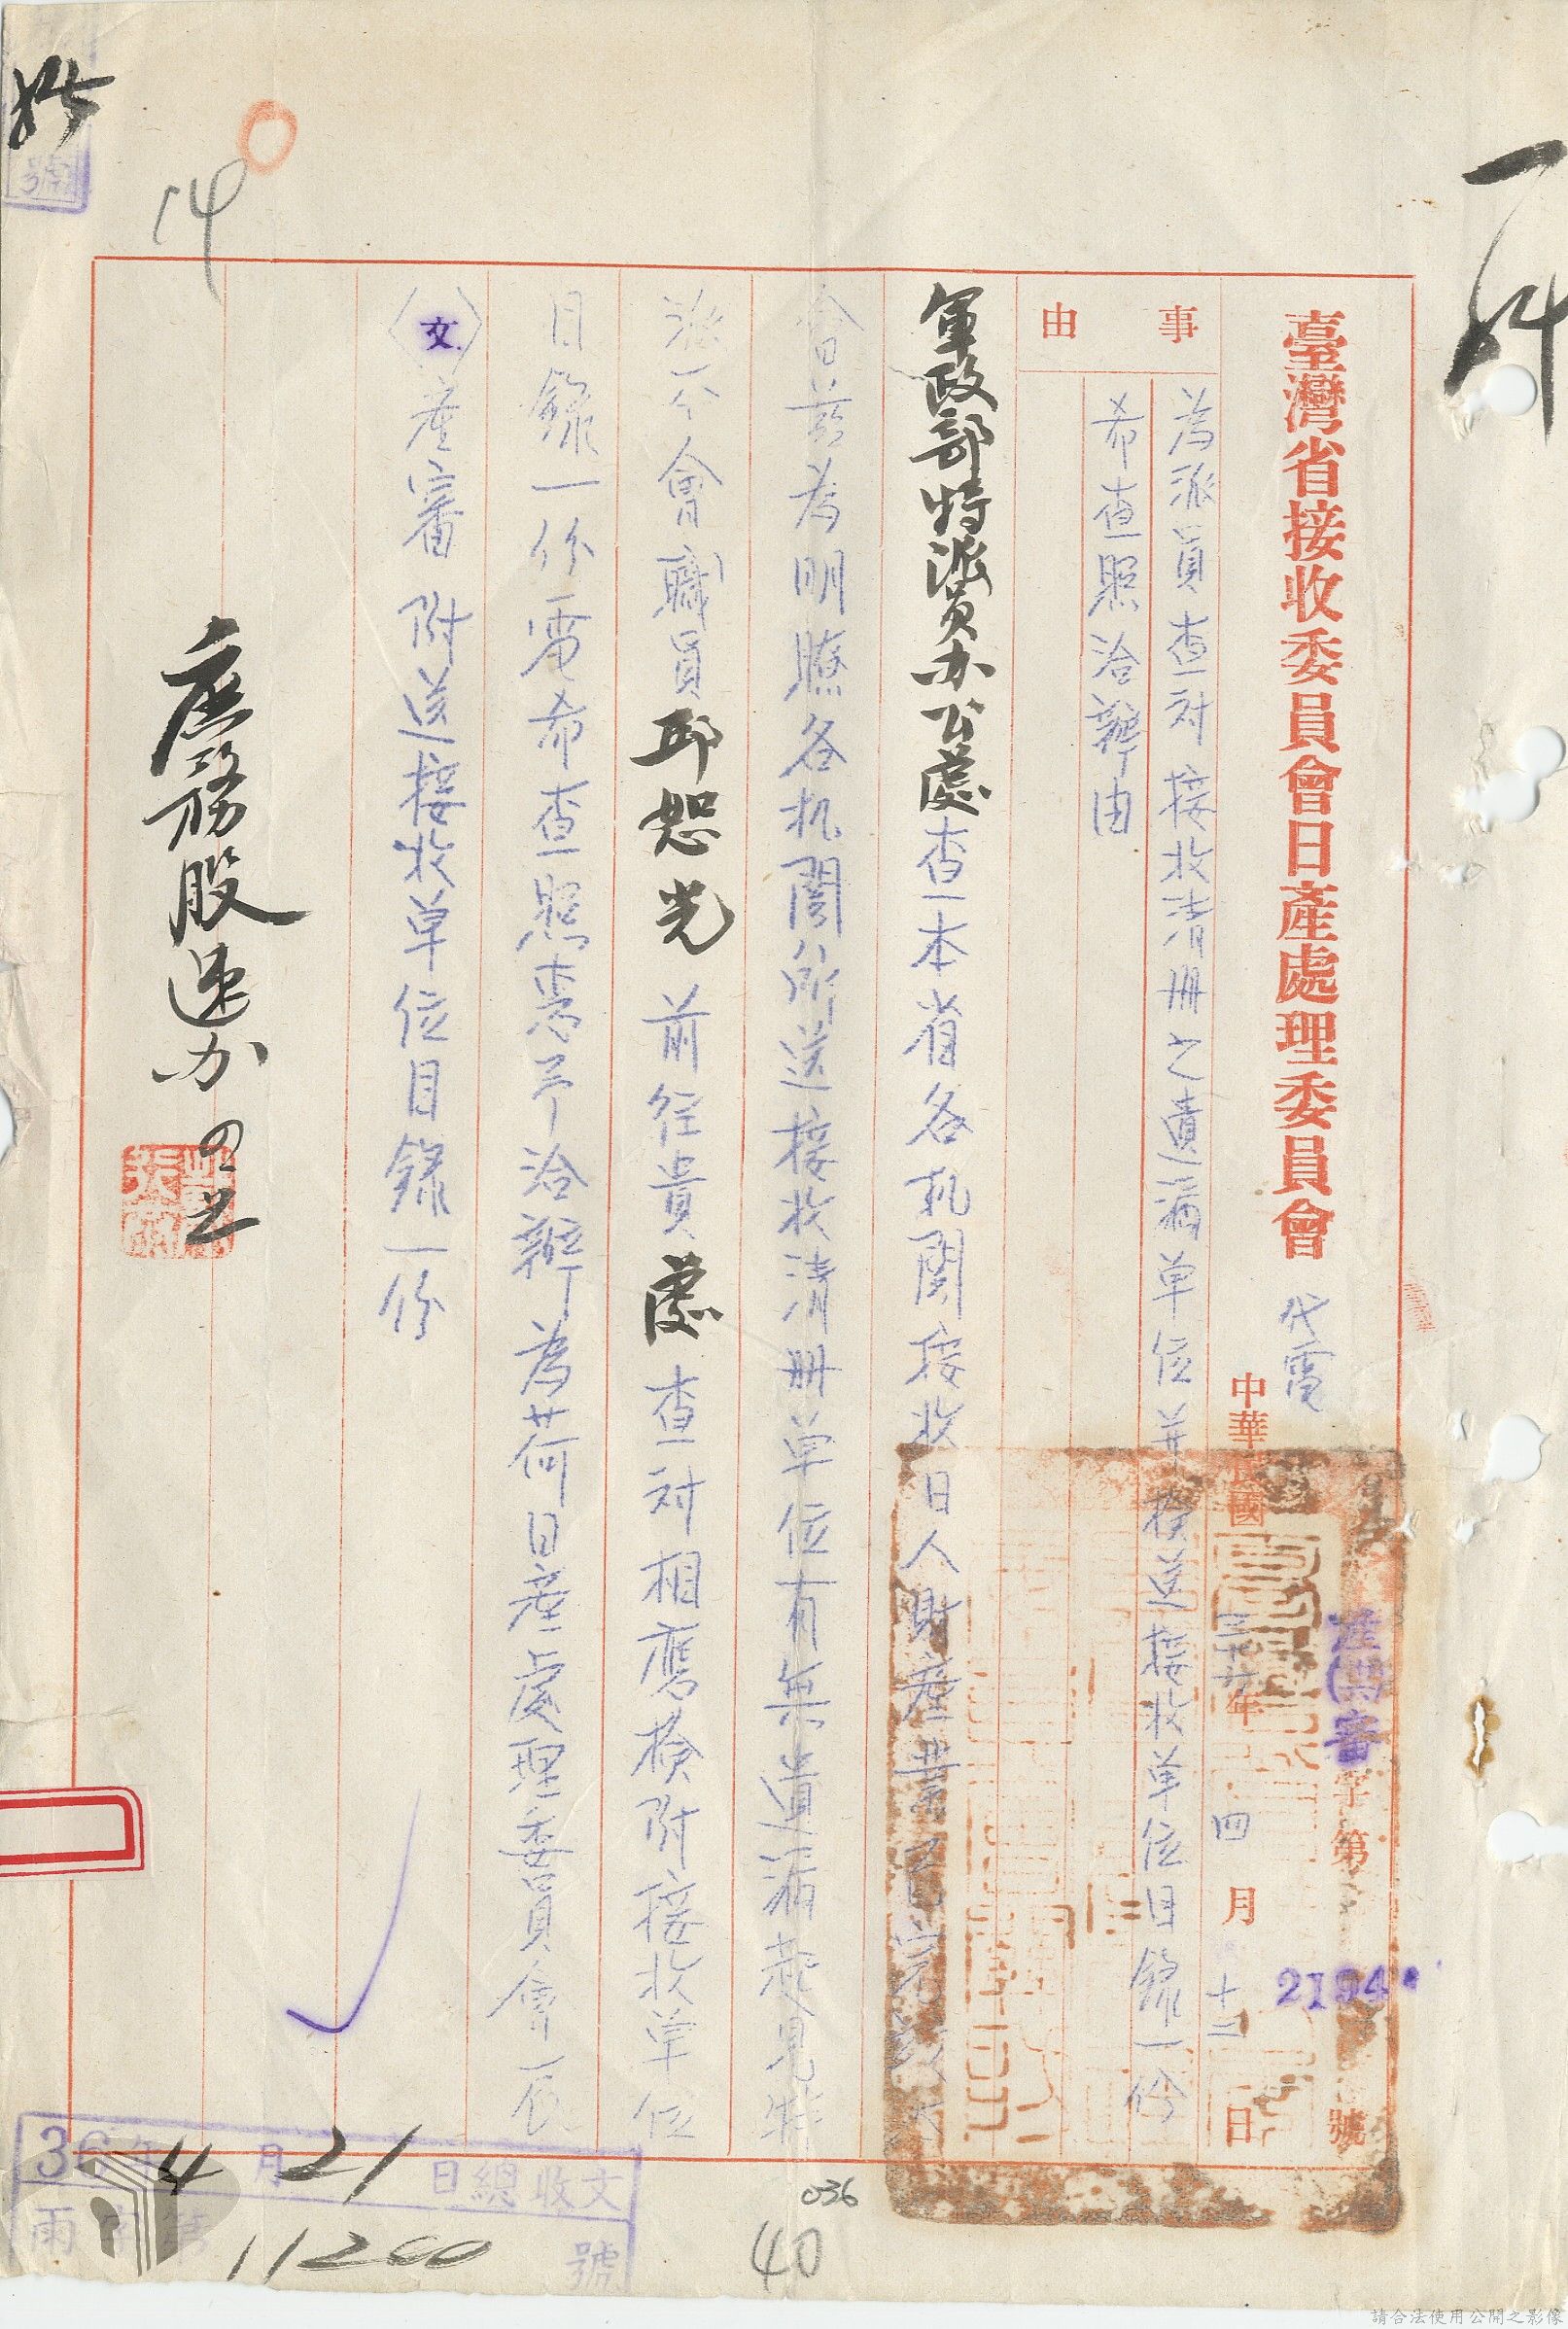 一科
臺灣省接收委員會日產處理委員會 代電
產(卅六)審字第2194號
中華民國三十六年四月十二日
事由
為派員查对接收清册之遺漏单位并檢送接收单位目錄一份
希查照洽辦由
軍政部特派員办公處查本省各机関接收日人財產業已完
會茲為明瞭各机関所送接收清册单位有無遺漏起見特
派本會職員邱恕光前往貴處查对相應檢附接收单位
目錄一份電希查照惠予洽辦為荷日產處理委員會辰
〈文〉產審附送接收单位目錄一份
產務股速办
14
號
36年4月21日總收文
字第11200號
036
40
請合法使用公開之影像